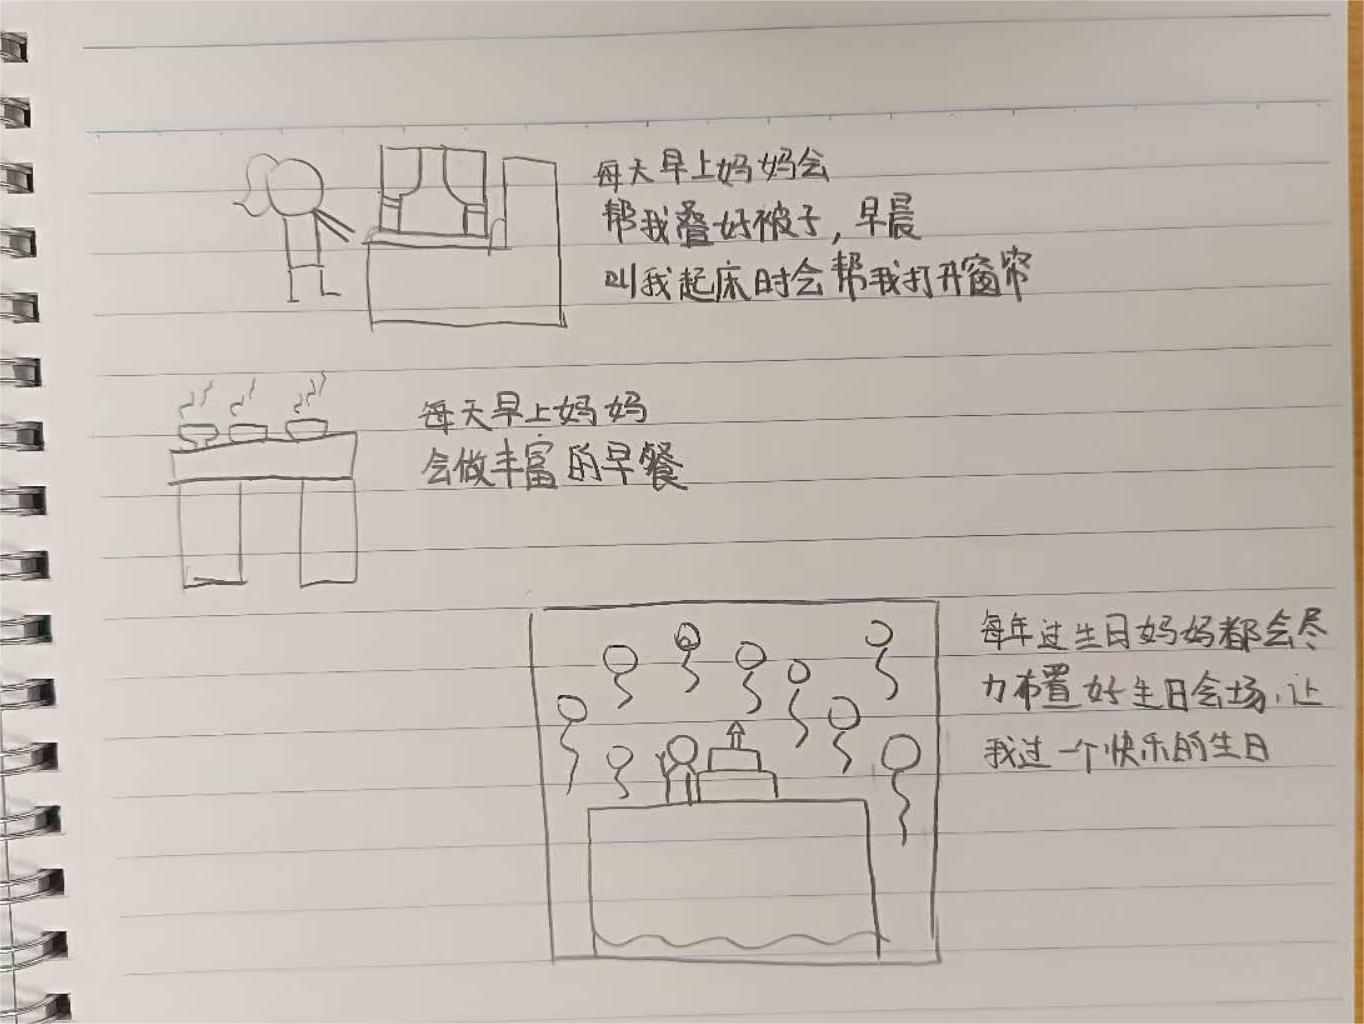 每天早上妈妈会
帮我叠好被子，早晨
叫我起床时会帮我打开窗帘
每天早上妈妈
会做丰富的早餐
每年过生日妈妈都会尽
力布置好生日会场，让
我过一个快乐的生日